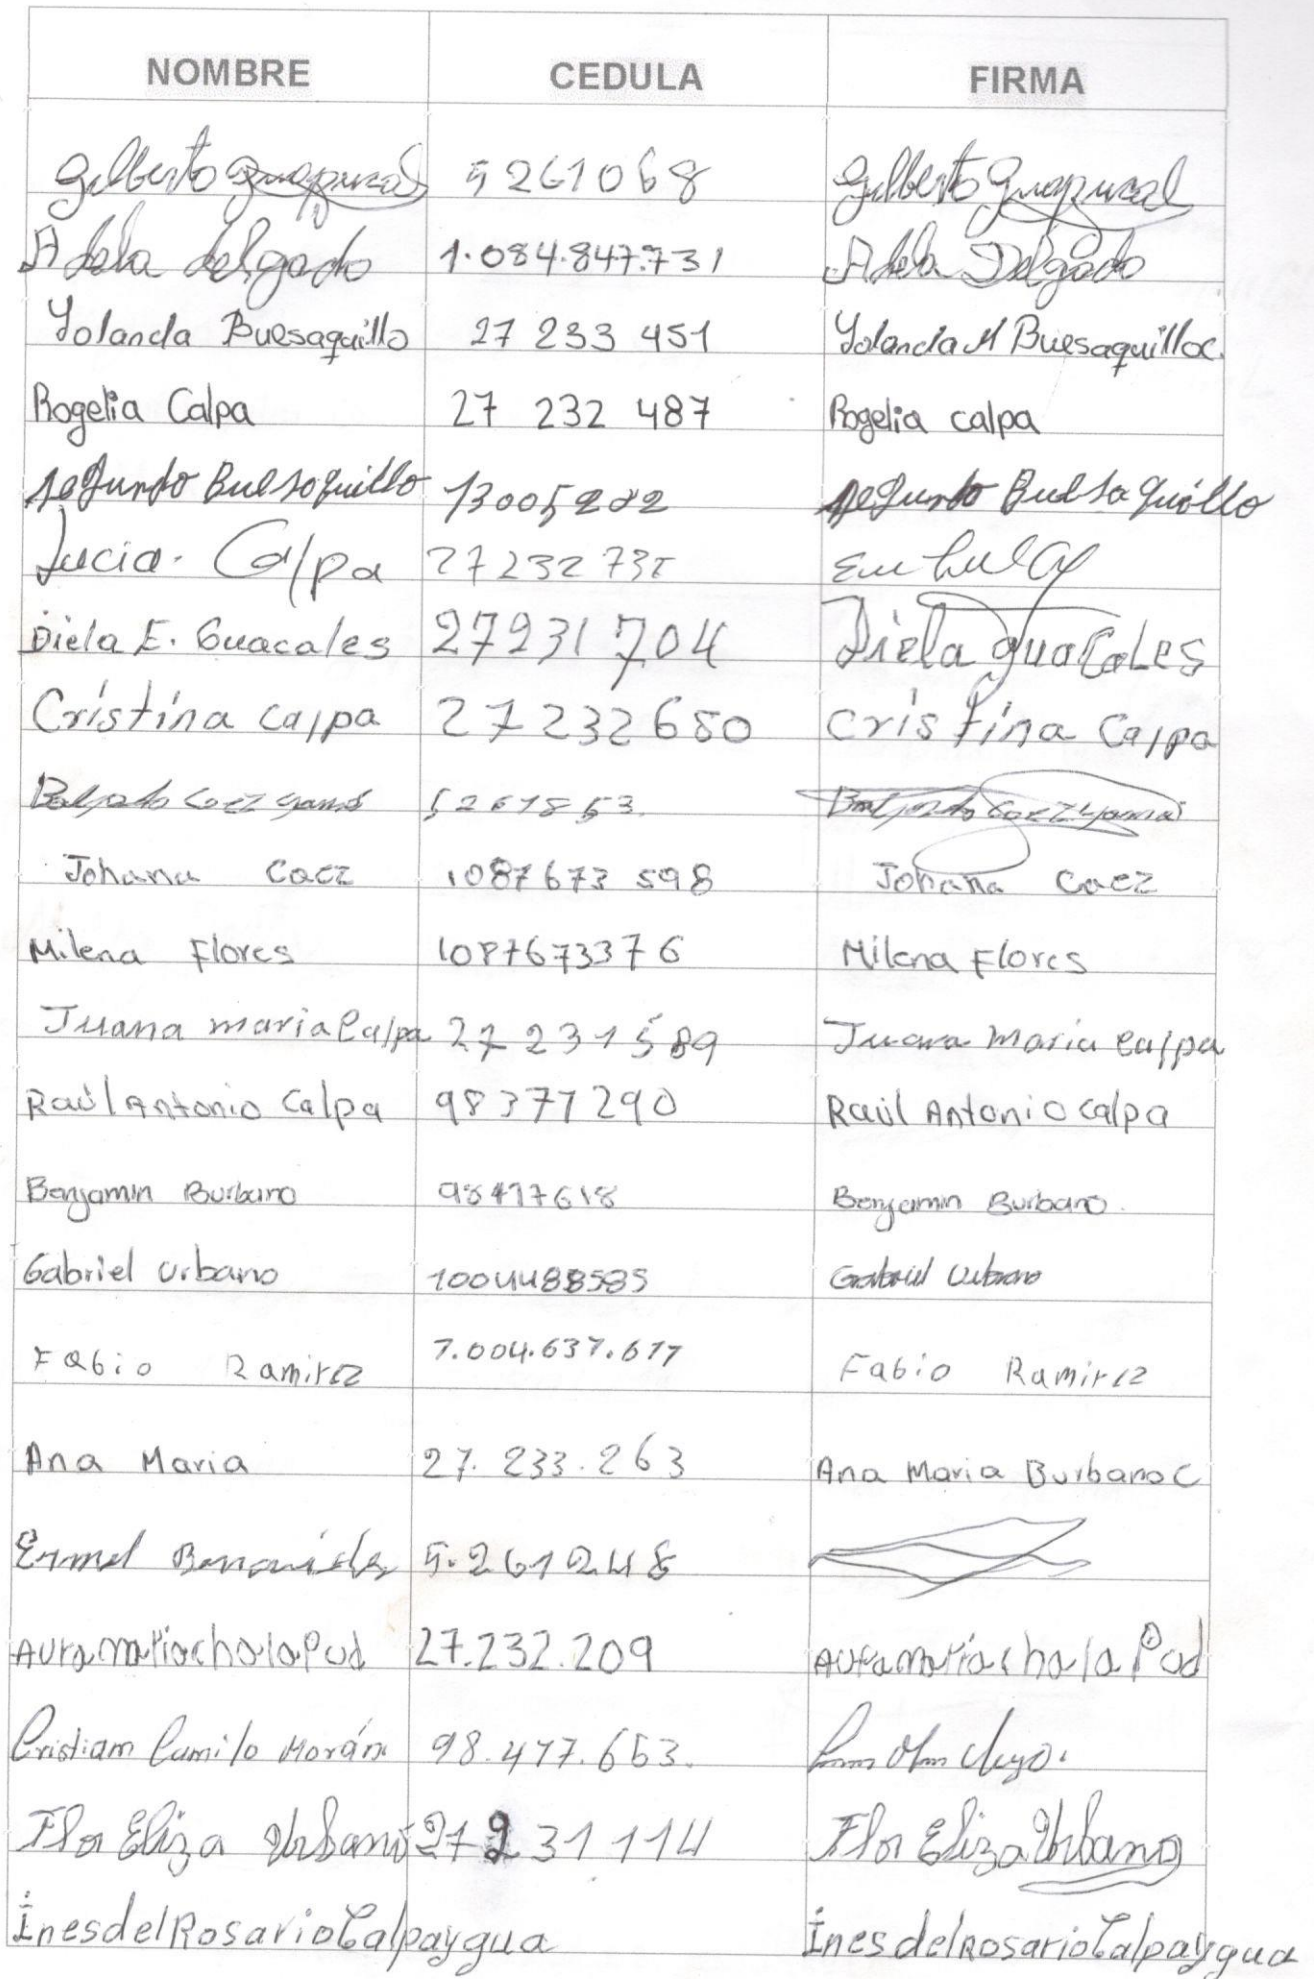 NOMBRE CEDULA FIRMA
Gilberto Guapucal 5261068 Gilberto Guapucal
Adela delgado 1.084.847.731 Adela Delgado
Yolanda Buesaquillo 27 233 451 Yolanda M Buesaquillo C.
Rogelia Calpa 27 232 487 Rogelia calpa
segundo Buesaquillo 13005202 segundo Buesaquillo
Lucia. Calpa 27232735
Diela E. Guacales 27231704 Diela guacales
Cristina calpa 27232680 cristina Calpa
5261853.
Johana Caez 1087673598 Johana Caez
Milena Flores 1087673376 Milena Flores
Juana maria Calpa 27 231589 Juana Maria calpa
Raúl Antonio Calpa 98377290 Raúl Antonio calpa
Benjamin Burbano 98477618 Benjamin Burbano.
Gabriel Urbano 1004488585 Gabriel Urbano
Fabio Ramirez 1.004.637.617 Fabio Ramirez
Ana Maria 27.233.263 Ana Maria Burbano C
Ermel Benavides 5.261248
Aura maria chala Pud 27.232.209 Aura maria chala Pud
Cristiam Camilo Morán 98.477.653.
Flor Eliza Urbano 27231114 Flor Eliza Urbano
Ines del Rosario Calpaygua Ines del Rosario Calpaygua